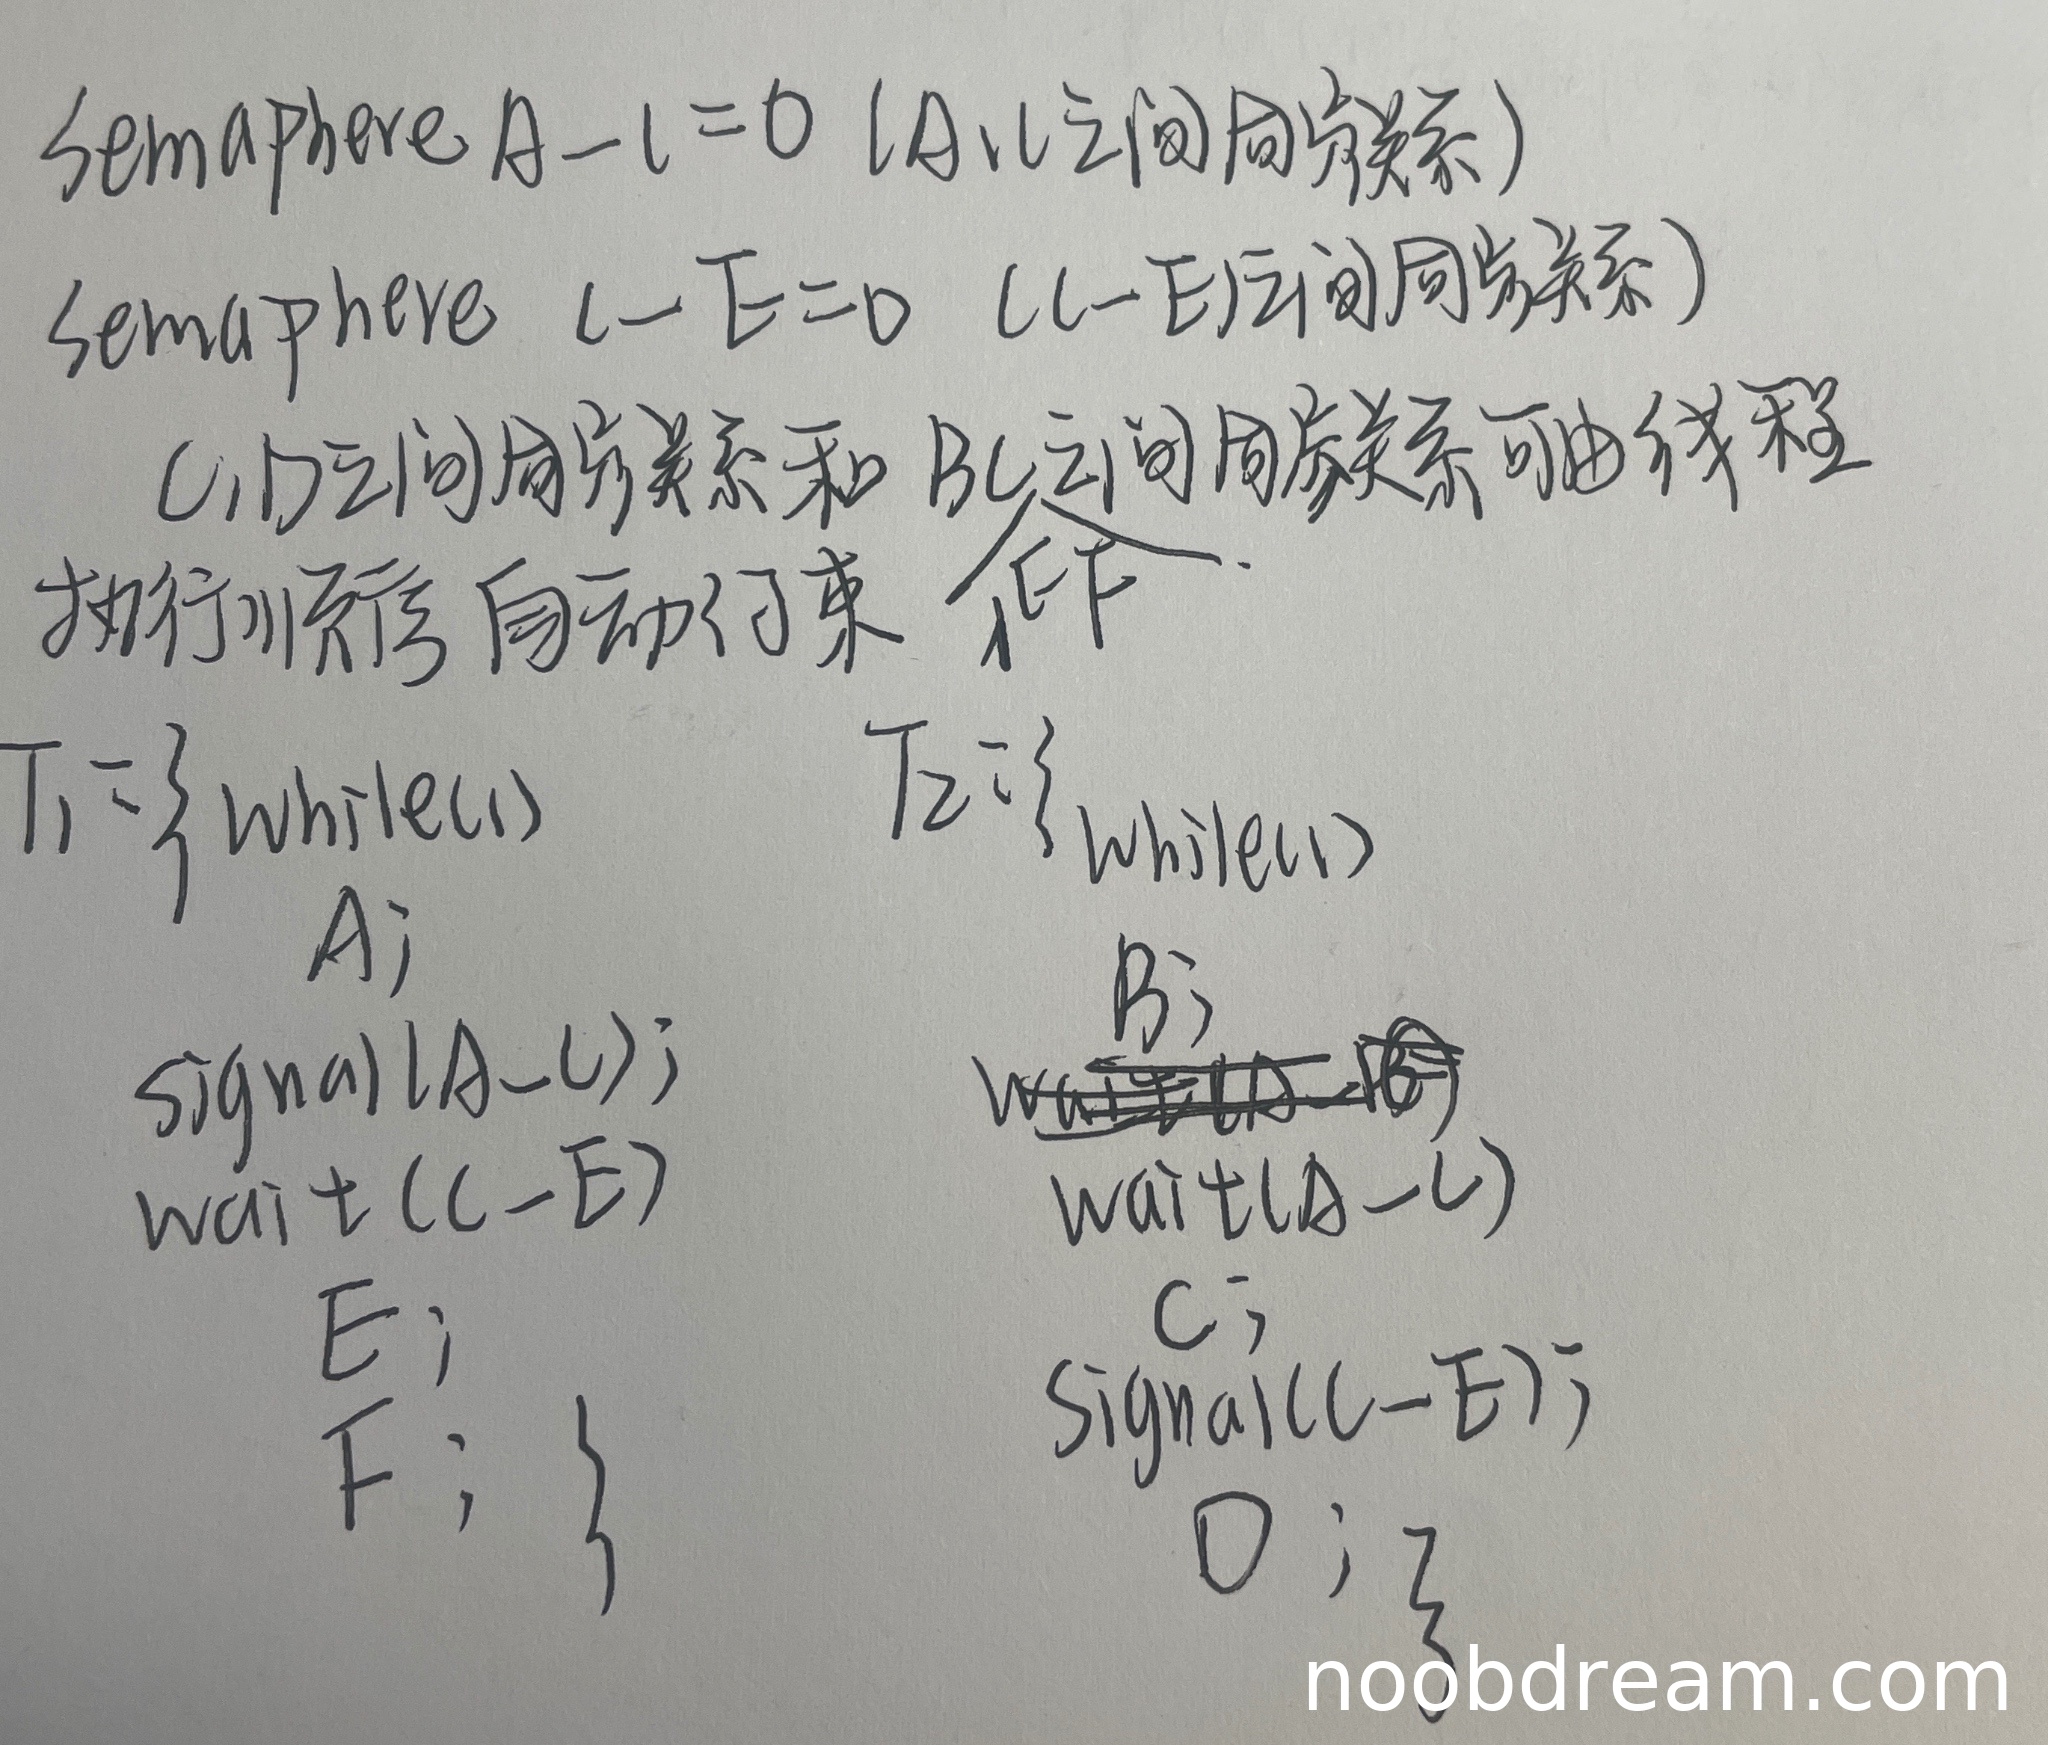 semaphere A-C=0 (A,C之间同步关系)
semaphere C-E=0 (C-E之间同步关系)
C,D之间同步关系和BC之间同步关系可由线程
和EF
执行顺序自动约束
T1={ while(1)
A;
signal(A-C);
wait(C-E)
E;
F; }
T2={ while(1)
B;
wait(A-C)
C;
signal(C-E);
D; }
noobdream.com